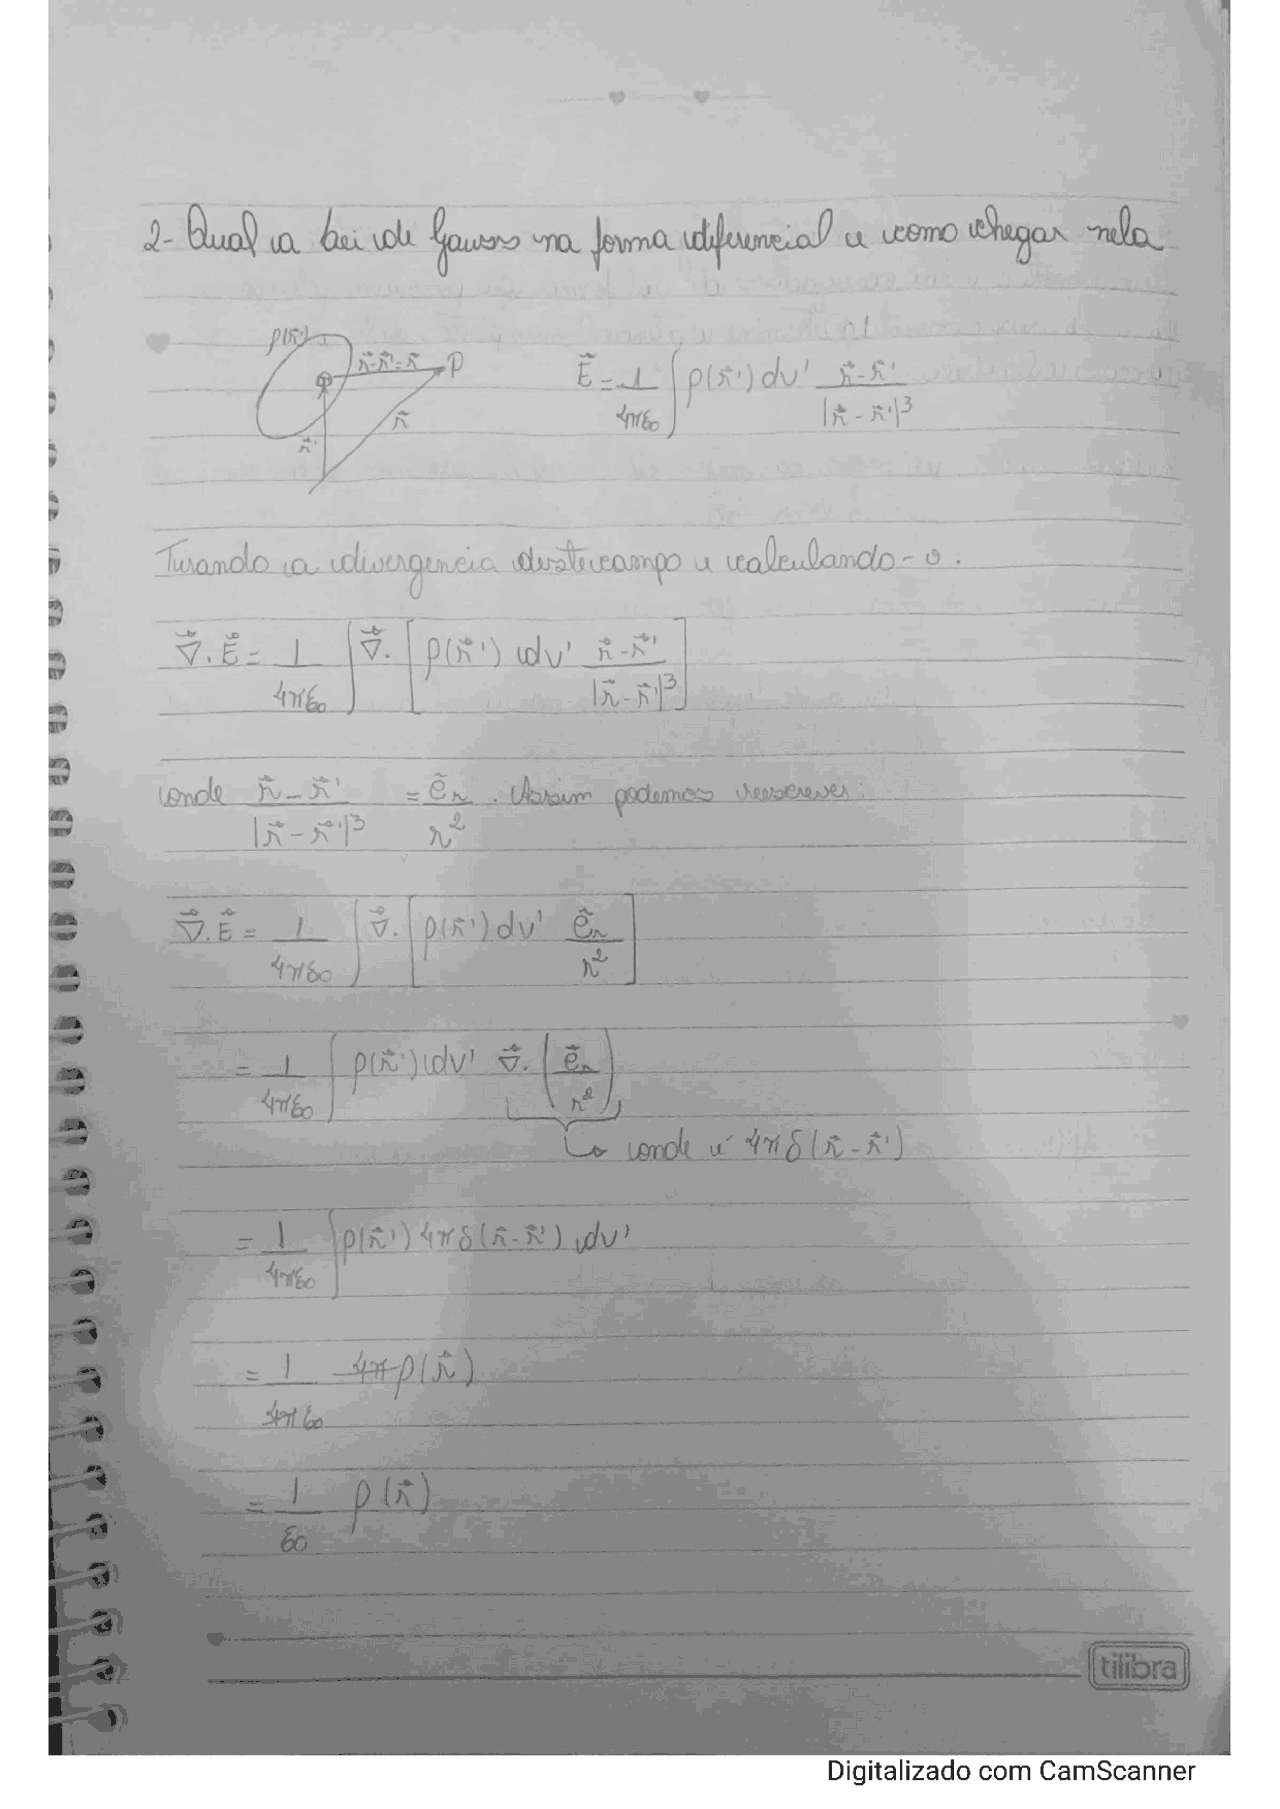 2- Qual a Lei de Gauss na forma diferencial e como chegar nela
ρ(r⃗')
r⃗-r⃗'=r⃗ P
r⃗
r⃗'
E⃗ = 1/4πε₀ ∫ ρ(r⃗') dv' r⃗-r⃗'/|r⃗-r⃗'|³
Tirando a divergencia deste campo e calculando-o.
∇⃗.E⃗ = 1/4πε₀ ∫ ∇⃗. [ρ(r⃗') dv' r⃗-r⃗'/|r⃗-r⃗'|³]
onde r⃗-r⃗'/|r⃗-r⃗'|³ = e⃗r/r². Assim podemos reescrever:
∇⃗.E⃗ = 1/4πε₀ ∫ ∇⃗. [ρ(r⃗') dv' e⃗r/r²]
= 1/4πε₀ ∫ ρ(r⃗') dv' ∇⃗. (e⃗r/r²)
↳ onde é 4πδ(r⃗-r⃗')
= 1/4πε₀ ∫ ρ(r⃗') 4πδ(r⃗-r⃗') dv'
= 1/4πε₀ 4πρ(r⃗)
= 1/ε₀ ρ(r⃗)
tilibra
Digitalizado com CamScanner